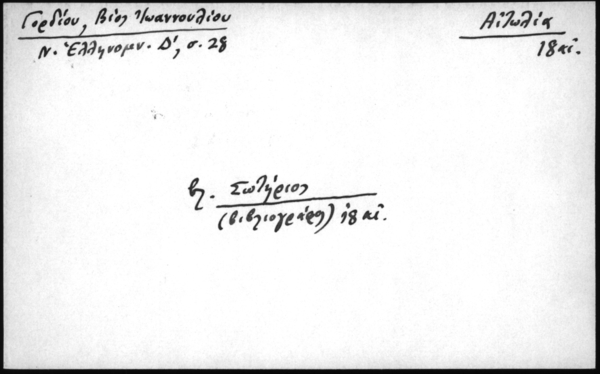 Γορδίου, Βίος Ἰωαννουλίου
Ν. Ἑλληνομν. Δ', σ. 28
Αἰτωλία
18 αἰ.
βλ. Σωτήριος
(βιβλιογράφος) 18 αἰ.